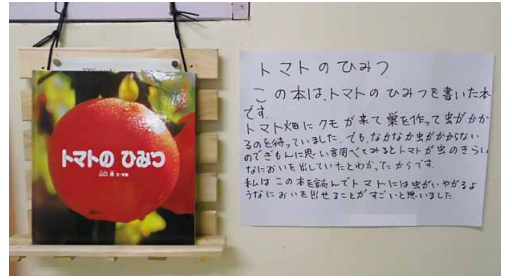 トマトの ひみつ
山口 進 文・写真
トマトのひみつ
この本は、トマトのひみつを書いた本
です。
トマト畑にクモが来て巣を作って虫がかか
るのを待っていました。でも、なかなか虫がかからない
のでぎもんに思い調べてみるとトマトが虫のきらい
なにおいを出していたとわかったからです。
私はこの本を読んでトマトには虫がいやがるよ
うなにおいを出せることがすごいと思いました